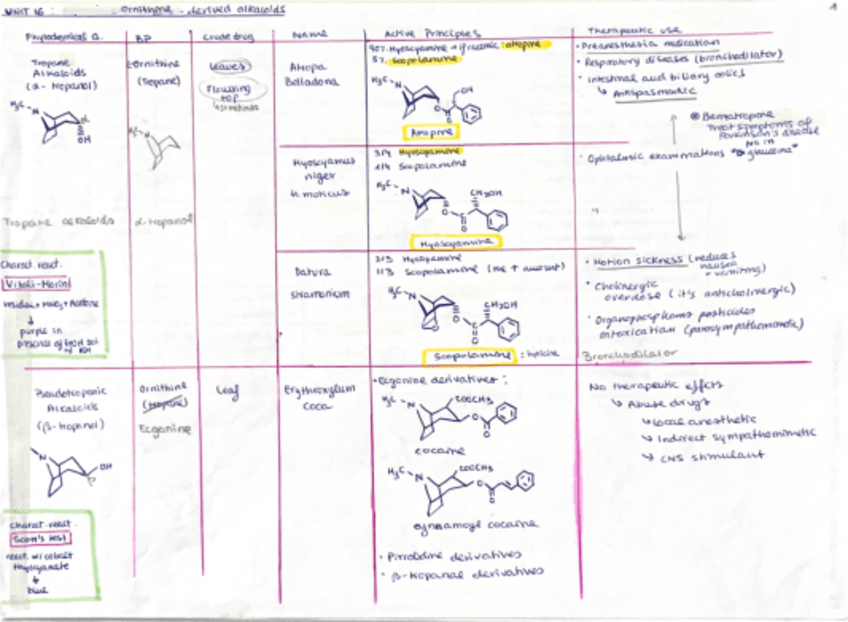 UNIT 16: Ornithine-derived alkaloids
1
Phytochemical G.
BP
Crude drug
Name
Active Principles
Therapeutic use
Tropane
Alkaloids
(α-tropanol)
H₃C
N
OH
Ornithine
(Tropane)
H₃C
N
Leaves
Flowering
top
Atropa
Belladona
90% Hyoscyamine → if racemic: atropine
5% Scopolamine
H₃C
N
OH
O
O
Atropine
· Preanesthesia medication
· Respiratory diseases (bronchodilator)
· Intestinal and biliary colics
↳ Antispasmodic
Benzatropine
treat symptoms of
Parkinson's disease
Hyoscyamus
niger
H. muticus
3/4 Hyoscyamine
1/4 Scopolamine
H₃C
N
CH₂OH
O
O
Hyoscyamine
· Ophtalmic examinations
"glaucoma"
"
Tropane alkaloids
α-tropanol
Charact. react.
Vitali-Morin
residue + HNO₃ + Acetone
↓
purple in
presence of
KOH
Datura
stramonium
2/3 Hyoscyamine
1/3 Scopolamine (the + amount)
H₃C
N
O
CH₂OH
O
O
Scopolamine
· Motion sickness (reduces
nausea
+ vomiting)
· Cholinergic
overdose (it's anticholinergic)
· Organophosphorus pesticides
intoxication (parasympathomimetic)
Bronchodilator
Pseudotropanic
Alkaloids
(β-tropanol)
N
OH
Ornithine
(tropane)
Ecgonine
Leaf
Erythroxylum
coca
· Ecgonine derivatives:
H₃C
N
COOCH₃
O
O
cocaine
H₃C
N
COOCH₃
O
O
cynnamoyl cocaine
· Pirrolidine derivatives
· β-tropanae derivatives
No therapeutic effects
↳ Abuse drugs
↳ Local anesthetic
↳ Indirect sympathomimetic
↳ CNS stimulant
Charact. react.
Scott's test
react. w/ cobalt
thyocyanate
↓
blue